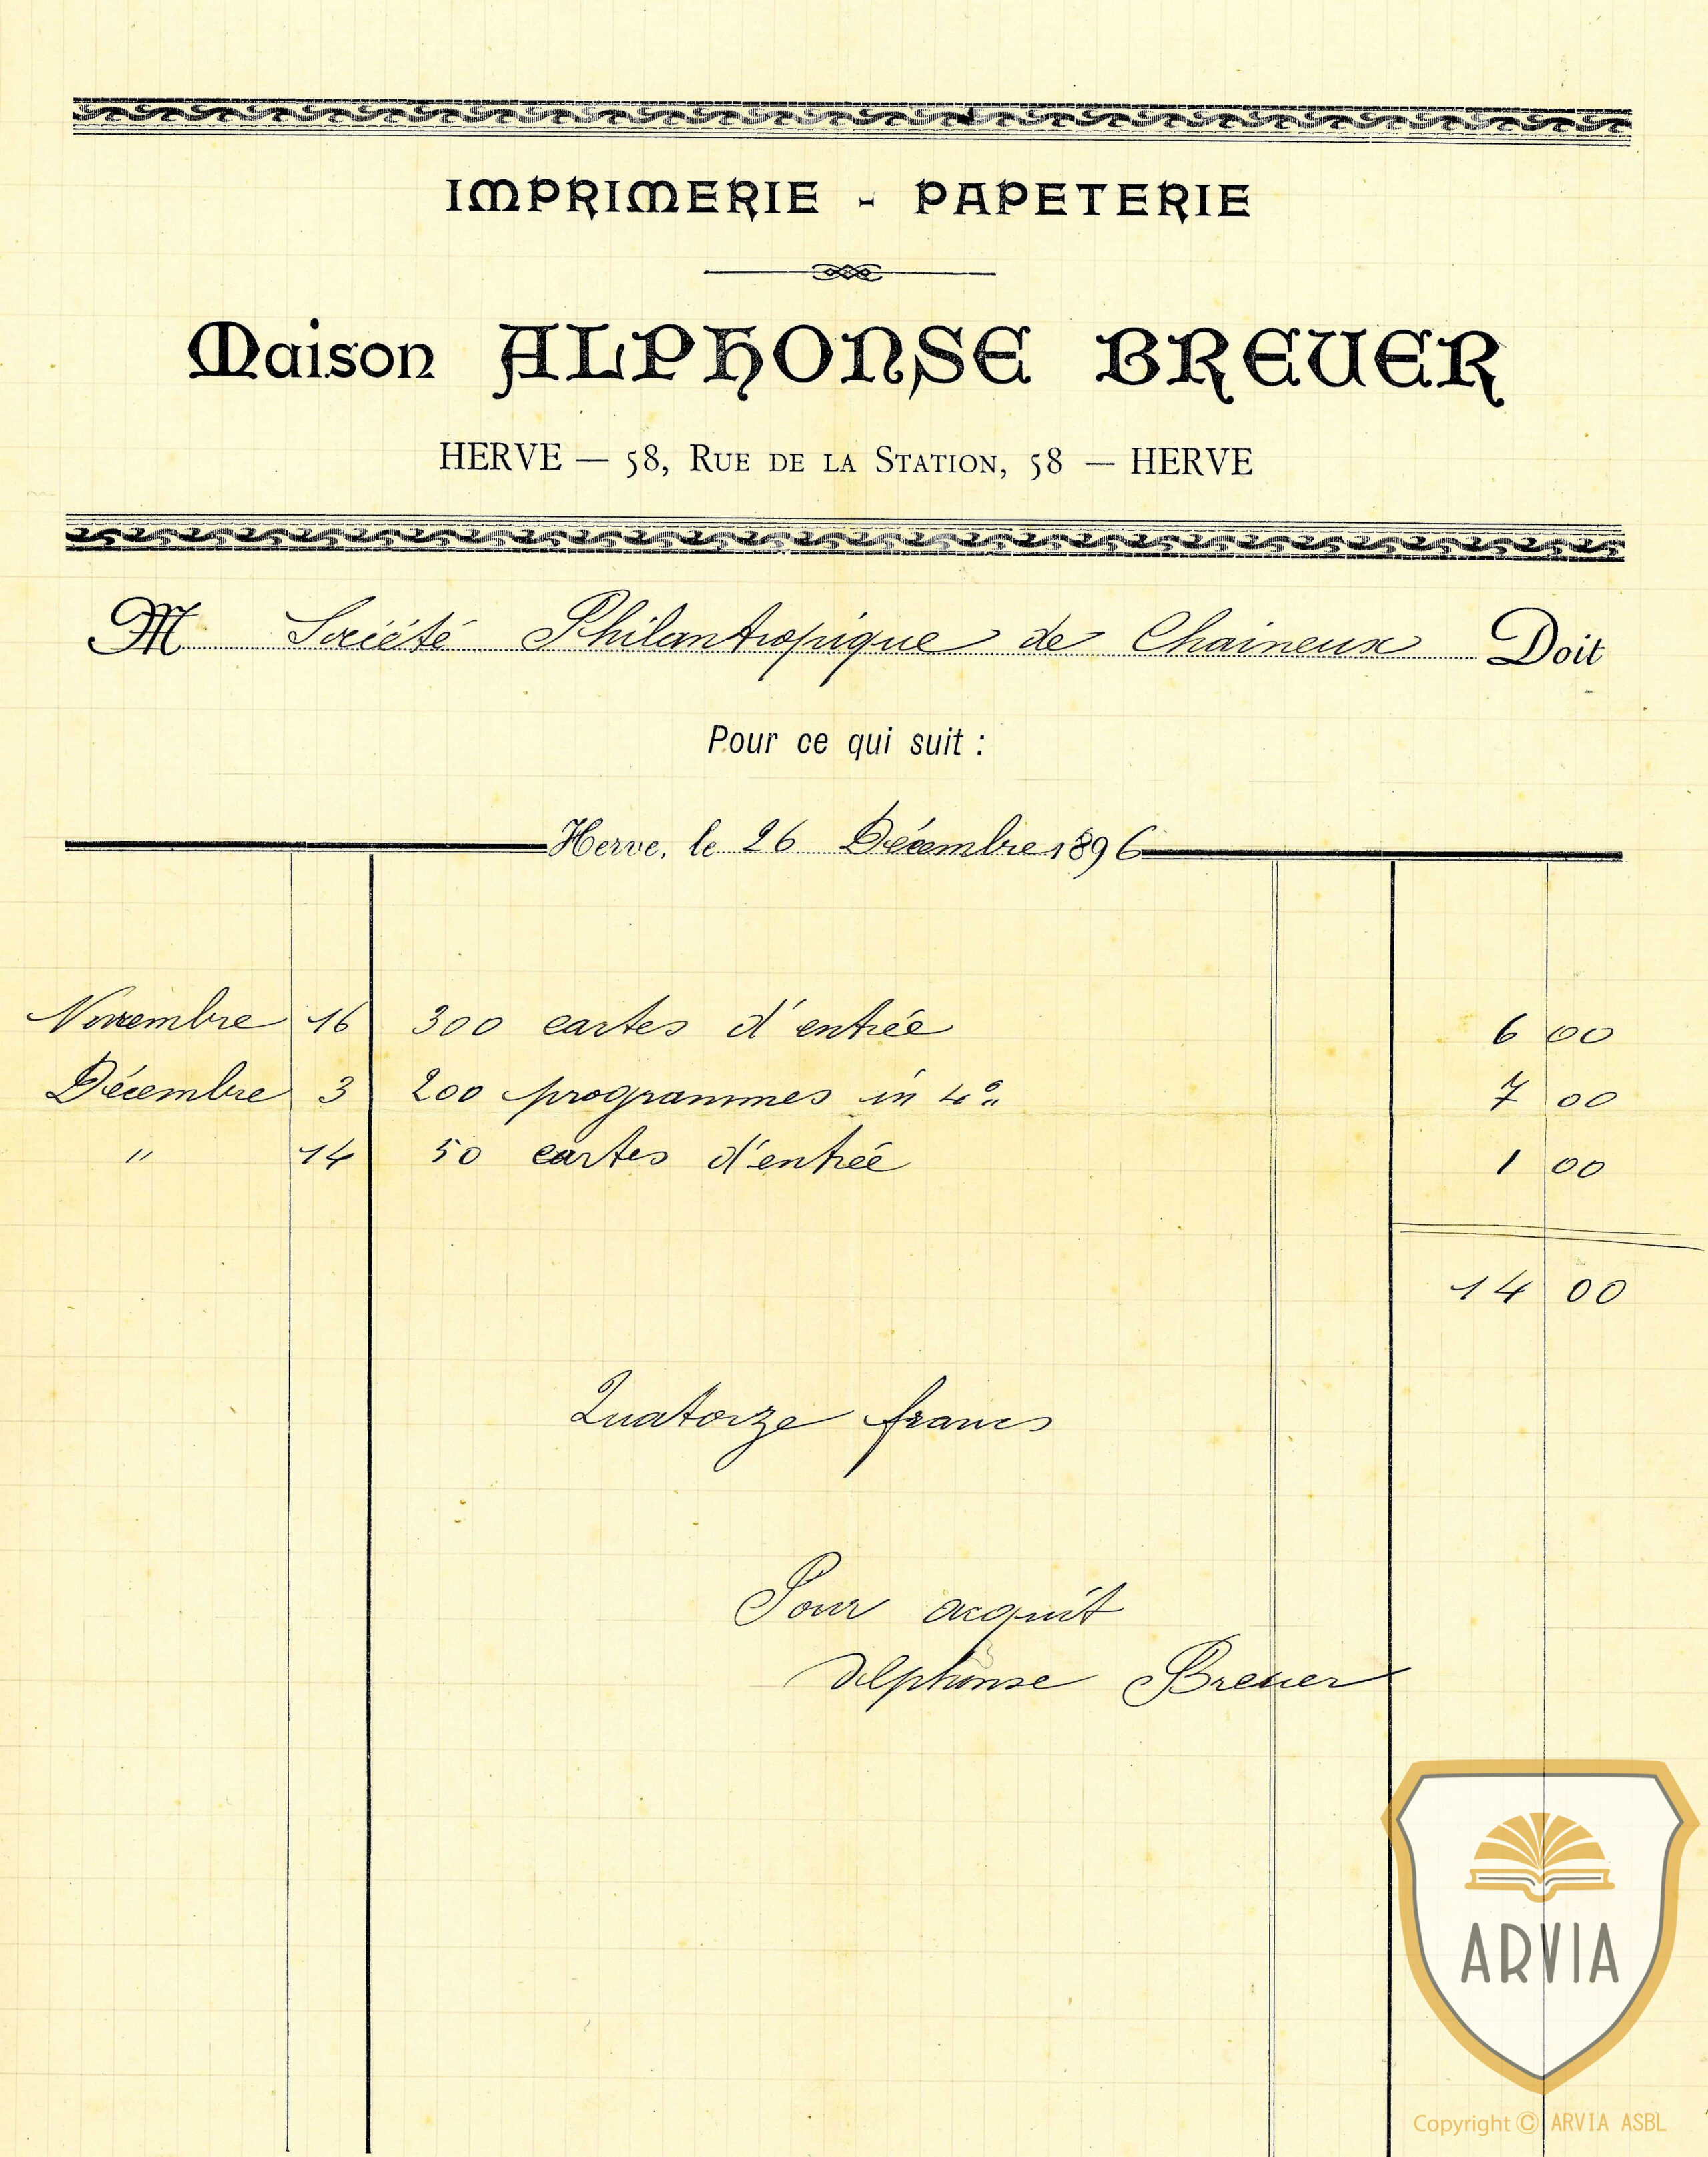 IMPRIMERIE - PAPETERIE
Maison ALPHONSE BREUER
HERVE — 58, RUE DE LA STATION, 58 — HERVE
M Société Philantropique de Chaineux Doit
Pour ce qui suit :
Herve, le 26 Décembre 1896
Novembre 16 300 cartes d'entrée 6 00
Décembre 3 200 programmes in 4° 7 00
" 14 50 cartes d'entrée 1 00
14 00
Quatorze francs
Pour acquit
Alphonse Breuer
ARVIA
Copyright © ARVIA ASBL